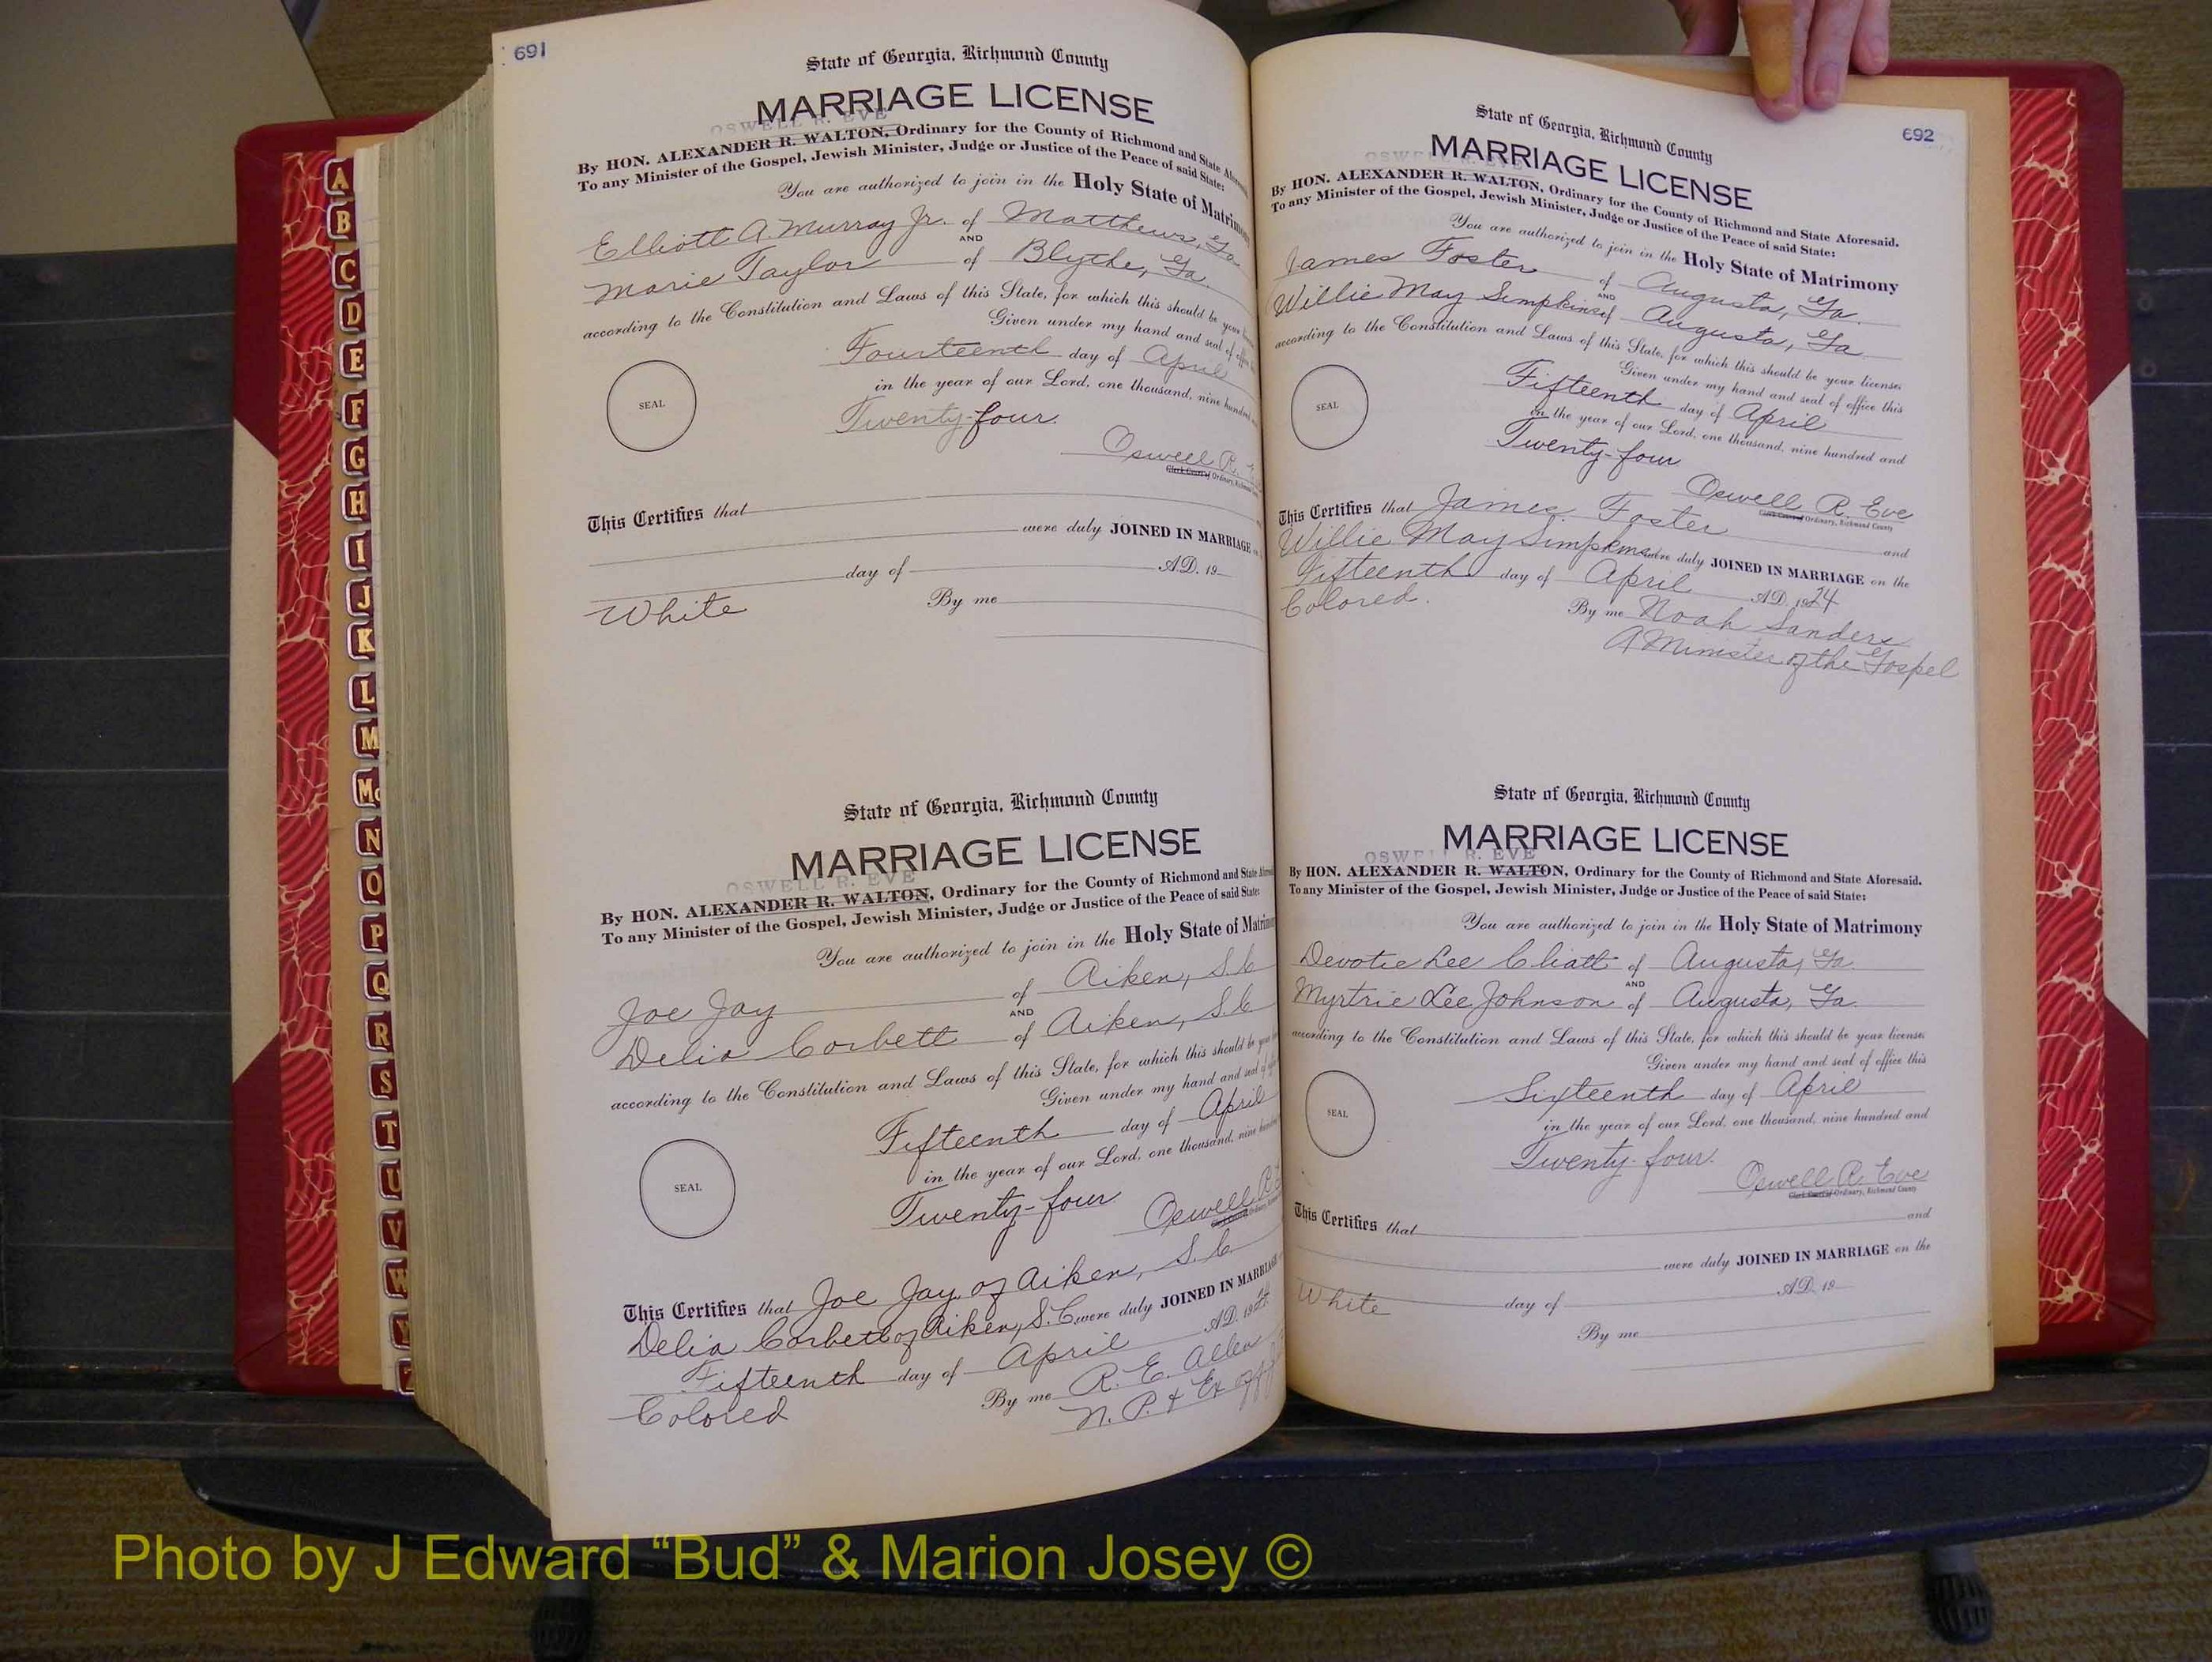 691
State of Georgia, Richmond County
MARRIAGE LICENSE
OSWELL R. EVE
By HON. ALEXANDER R. WALTON, Ordinary for the County of Richmond and State
To any Minister of the Gospel, Jewish Minister, Judge or Justice of the Peace of said State:
You are authorized to join in the Holy State of Matrimony
Elliott A. Murray Jr. of Matthews, Ga
AND
Marie Taylor of Blythe, Ga.
according to the Constitution and Laws of this State, for which this should be your
Given under my hand and seal of
Fourteenth day of April
SEAL
in the year of our Lord, one thousand, nine hundred
Twenty-four.
Oswell R.
Clerk Court of Ordinary, Richmond
This Certifies that
were duly JOINED IN MARRIAGE
day of A.D. 19
White By me
State of Georgia, Richmond County
MARRIAGE LICENSE
OSWELL R. EVE
By HON. ALEXANDER R. WALTON, Ordinary for the County of Richmond and State
To any Minister of the Gospel, Jewish Minister, Judge or Justice of the Peace of said State:
You are authorized to join in the Holy State of
Joe Jay of Aiken, S.C
AND
Delia Corbett of Aiken, S.C
according to the Constitution and Laws of this State, for which this should be
Given under my hand and seal of
Fifteenth day of April
SEAL
in the year of our Lord, one thousand, nine
Twenty-four
Oswell R.
This Certifies that Joe Jay of Aiken, S.C.
Delia Corbett of Aiken, S.C. were duly JOINED IN MARRIAGE
Fifteenth day of April A.D. 1924
Colored By me R. E. Allen
N. P. & Ex
692
State of Georgia, Richmond County
MARRIAGE LICENSE
OSWELL R. EVE
By HON. ALEXANDER R. WALTON, Ordinary for the County of Richmond and State Aforesaid.
To any Minister of the Gospel, Jewish Minister, Judge or Justice of the Peace of said State:
You are authorized to join in the Holy State of Matrimony
James Foster of Augusta, Ga.
AND
Willie May Simpkins of Augusta, Ga
according to the Constitution and Laws of this State, for which this should be your license;
Given under my hand and seal of office this
Fifteenth day of April
SEAL
in the year of our Lord, one thousand, nine hundred and
Twenty-four
Oswell R. Eve
Clerk Court of Ordinary, Richmond County
This Certifies that James Foster and
Willie May Simpkins were duly JOINED IN MARRIAGE on the
Fifteenth day of April A.D. 1924
Colored. By me Noah Sanders
A Minister of the Gospel
State of Georgia, Richmond County
MARRIAGE LICENSE
OSWELL R. EVE
By HON. ALEXANDER R. WALTON, Ordinary for the County of Richmond and State Aforesaid.
To any Minister of the Gospel, Jewish Minister, Judge or Justice of the Peace of said State:
You are authorized to join in the Holy State of Matrimony
Devotie Lee Cliatt of Augusta, Ga.
AND
Myrtrie Lee Johnson of Augusta, Ga.
according to the Constitution and Laws of this State, for which this should be your license;
Given under my hand and seal of office this
Sixteenth day of April
SEAL
in the year of our Lord, one thousand, nine hundred and
Twenty-four.
Oswell R. Eve
Clerk Court of Ordinary, Richmond County
This Certifies that and
were duly JOINED IN MARRIAGE on the
White day of A.D. 19
By me
A
B
C
D
E
F
G
H
I
J
K
L
M
Mc
N
O
P
Q
R
S
T
U
V
W
Y
Z
Photo by J Edward “Bud” & Marion Josey ©